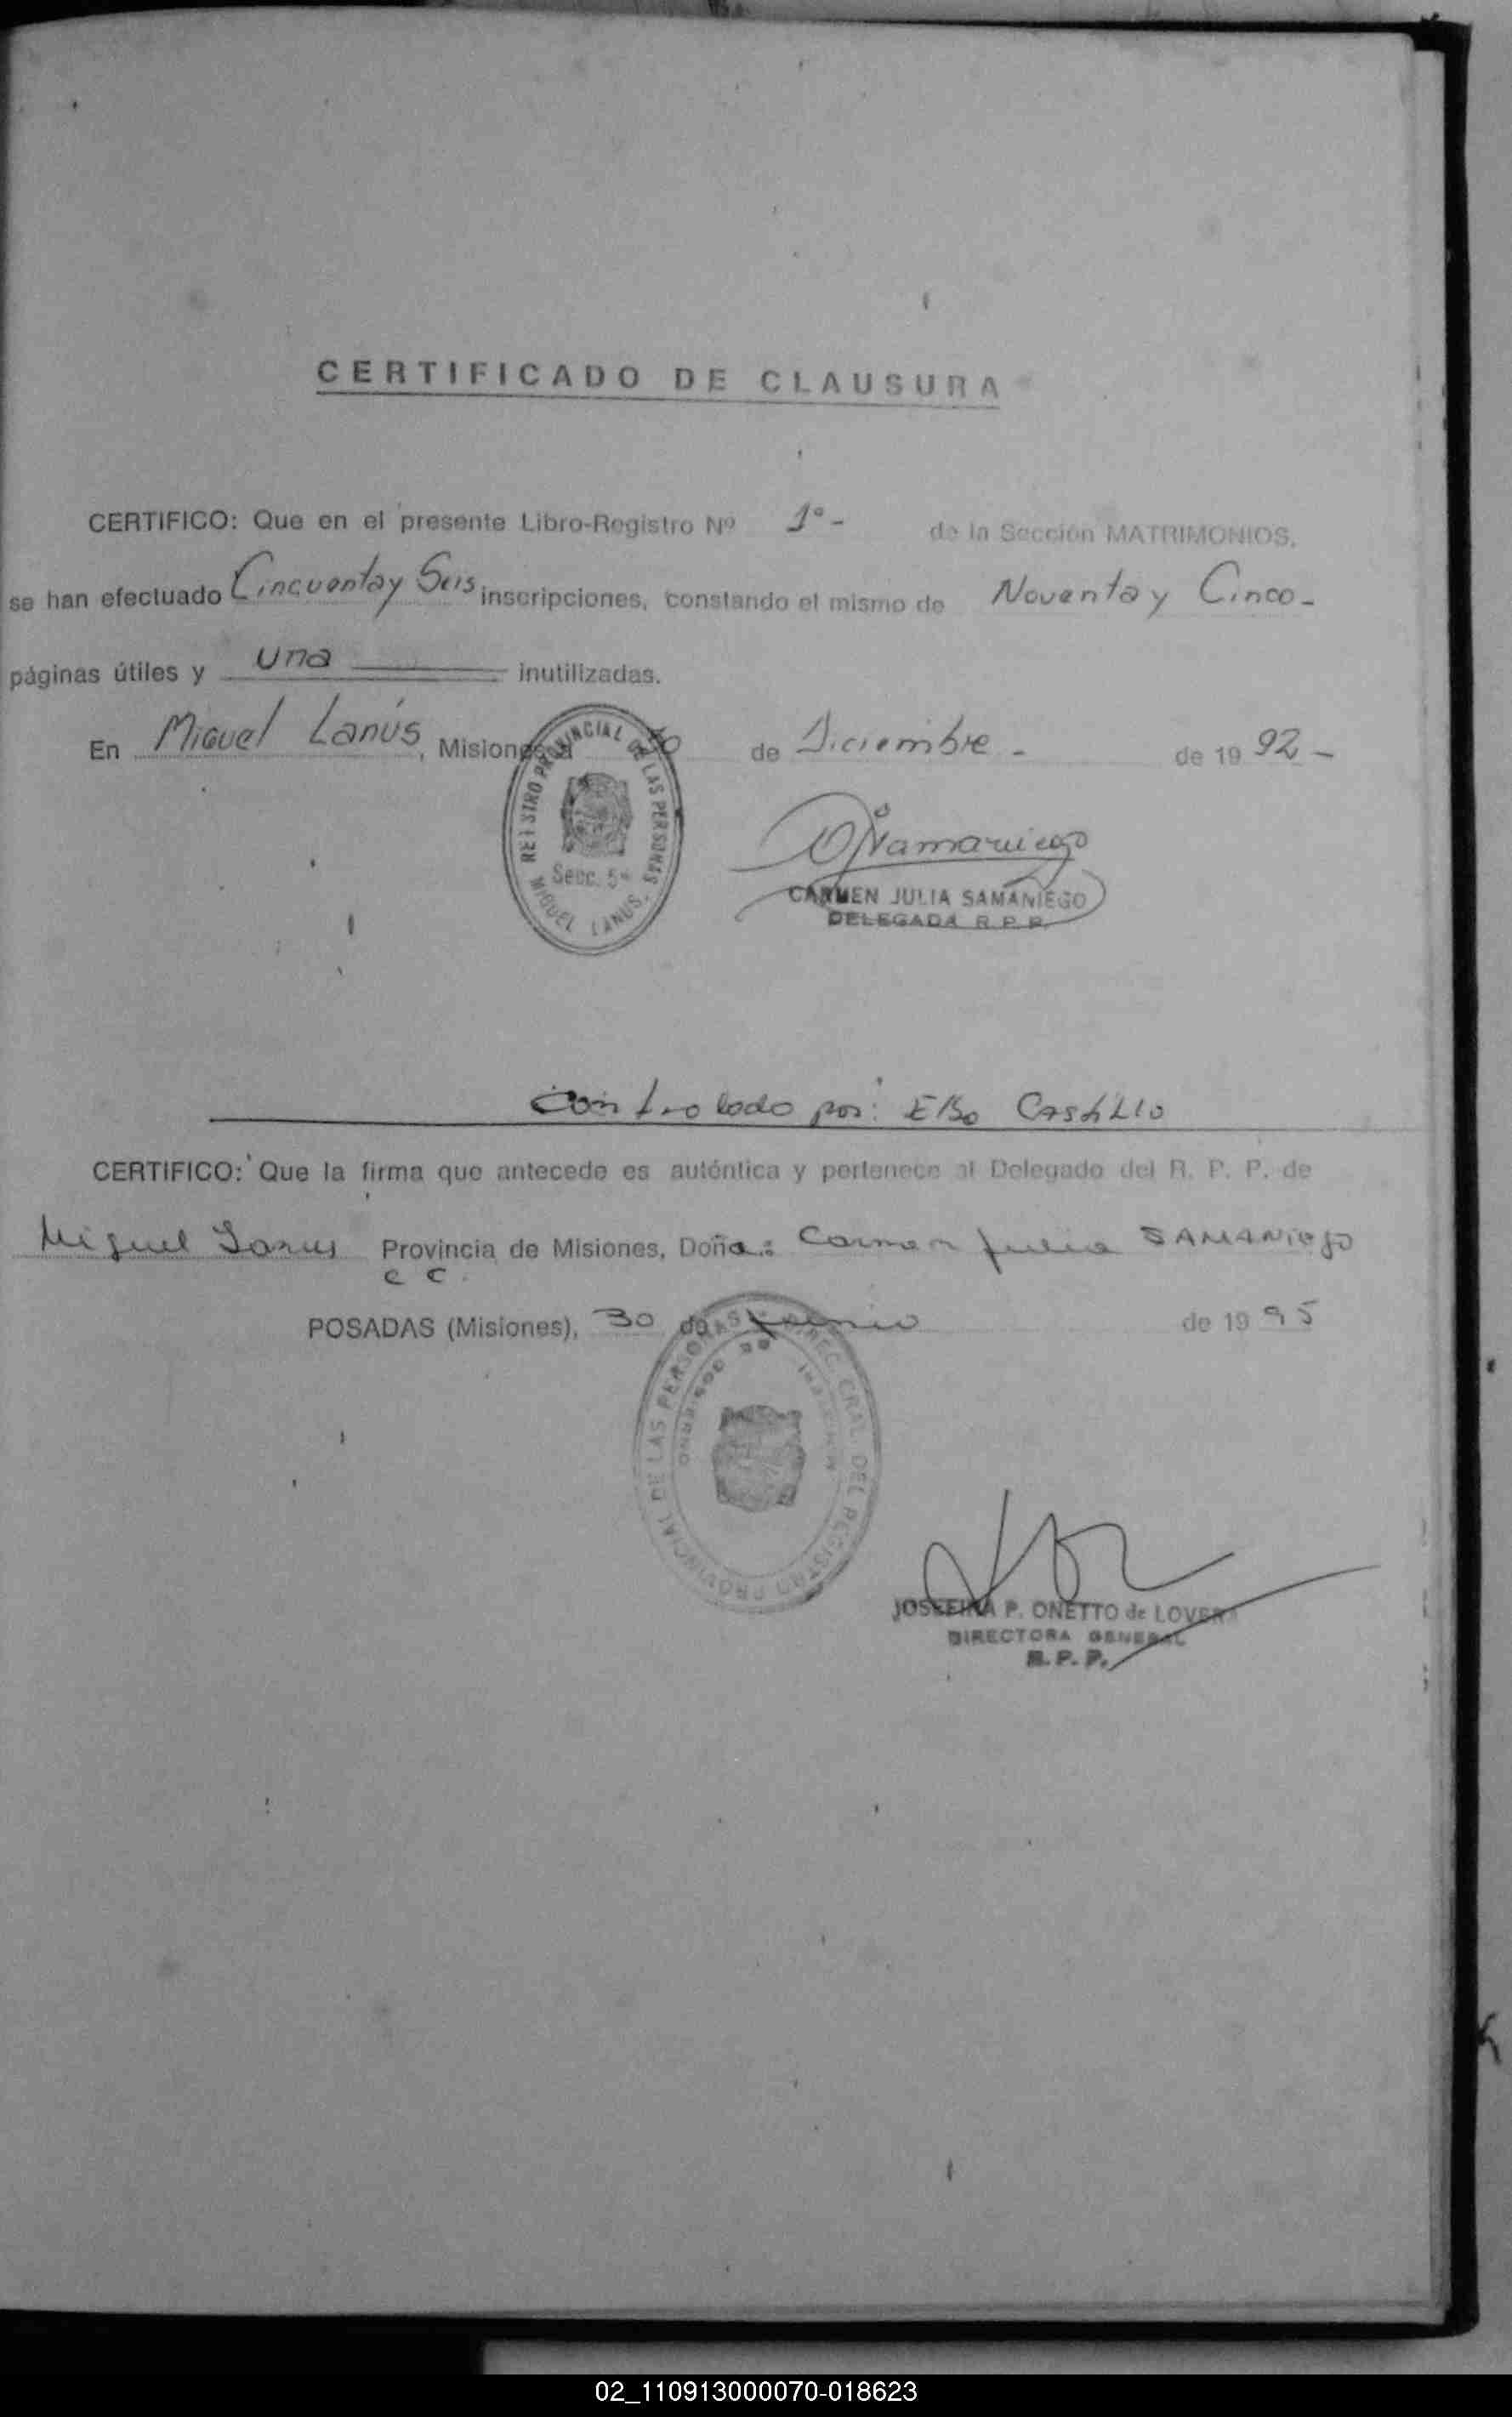 CERTIFICADO DE CLAUSURA
CERTIFICO: Que en el presente Libro-Registro Nº 1º - de la Sección MATRIMONIOS,
se han efectuado Cincuenta y Seis inscripciones, constando el mismo de Noventa y Cinco -
páginas útiles y una inutilizadas.
En Miguel Lanús, Misiones, a de Diciembre - de 1992 -
REGISTRO PROVINCIAL DE LAS PERSONAS
Secc. 5ª
MIGUEL LANUS.
CARMEN JULIA SAMANIEGO
DELEGADA R. P. P.
Controlado por: Elso CAStiLLO
CERTIFICO: Que la firma que antecede es auténtica y pertenece al Delegado del R. P. P. de
Miguel Lanus Provincia de Misiones, Doña: Carmen Julia SAMANiego
c c.
POSADAS (Misiones), 30 de Junio de 1995
DIREC. GRAL. DEL REGISTRO PROVINCIAL DE LAS PERSONAS
JOSEFINA P. ONETTO de LOVERA
DIRECTORA GENERAL
R. P. P.
02_110913000070-018623